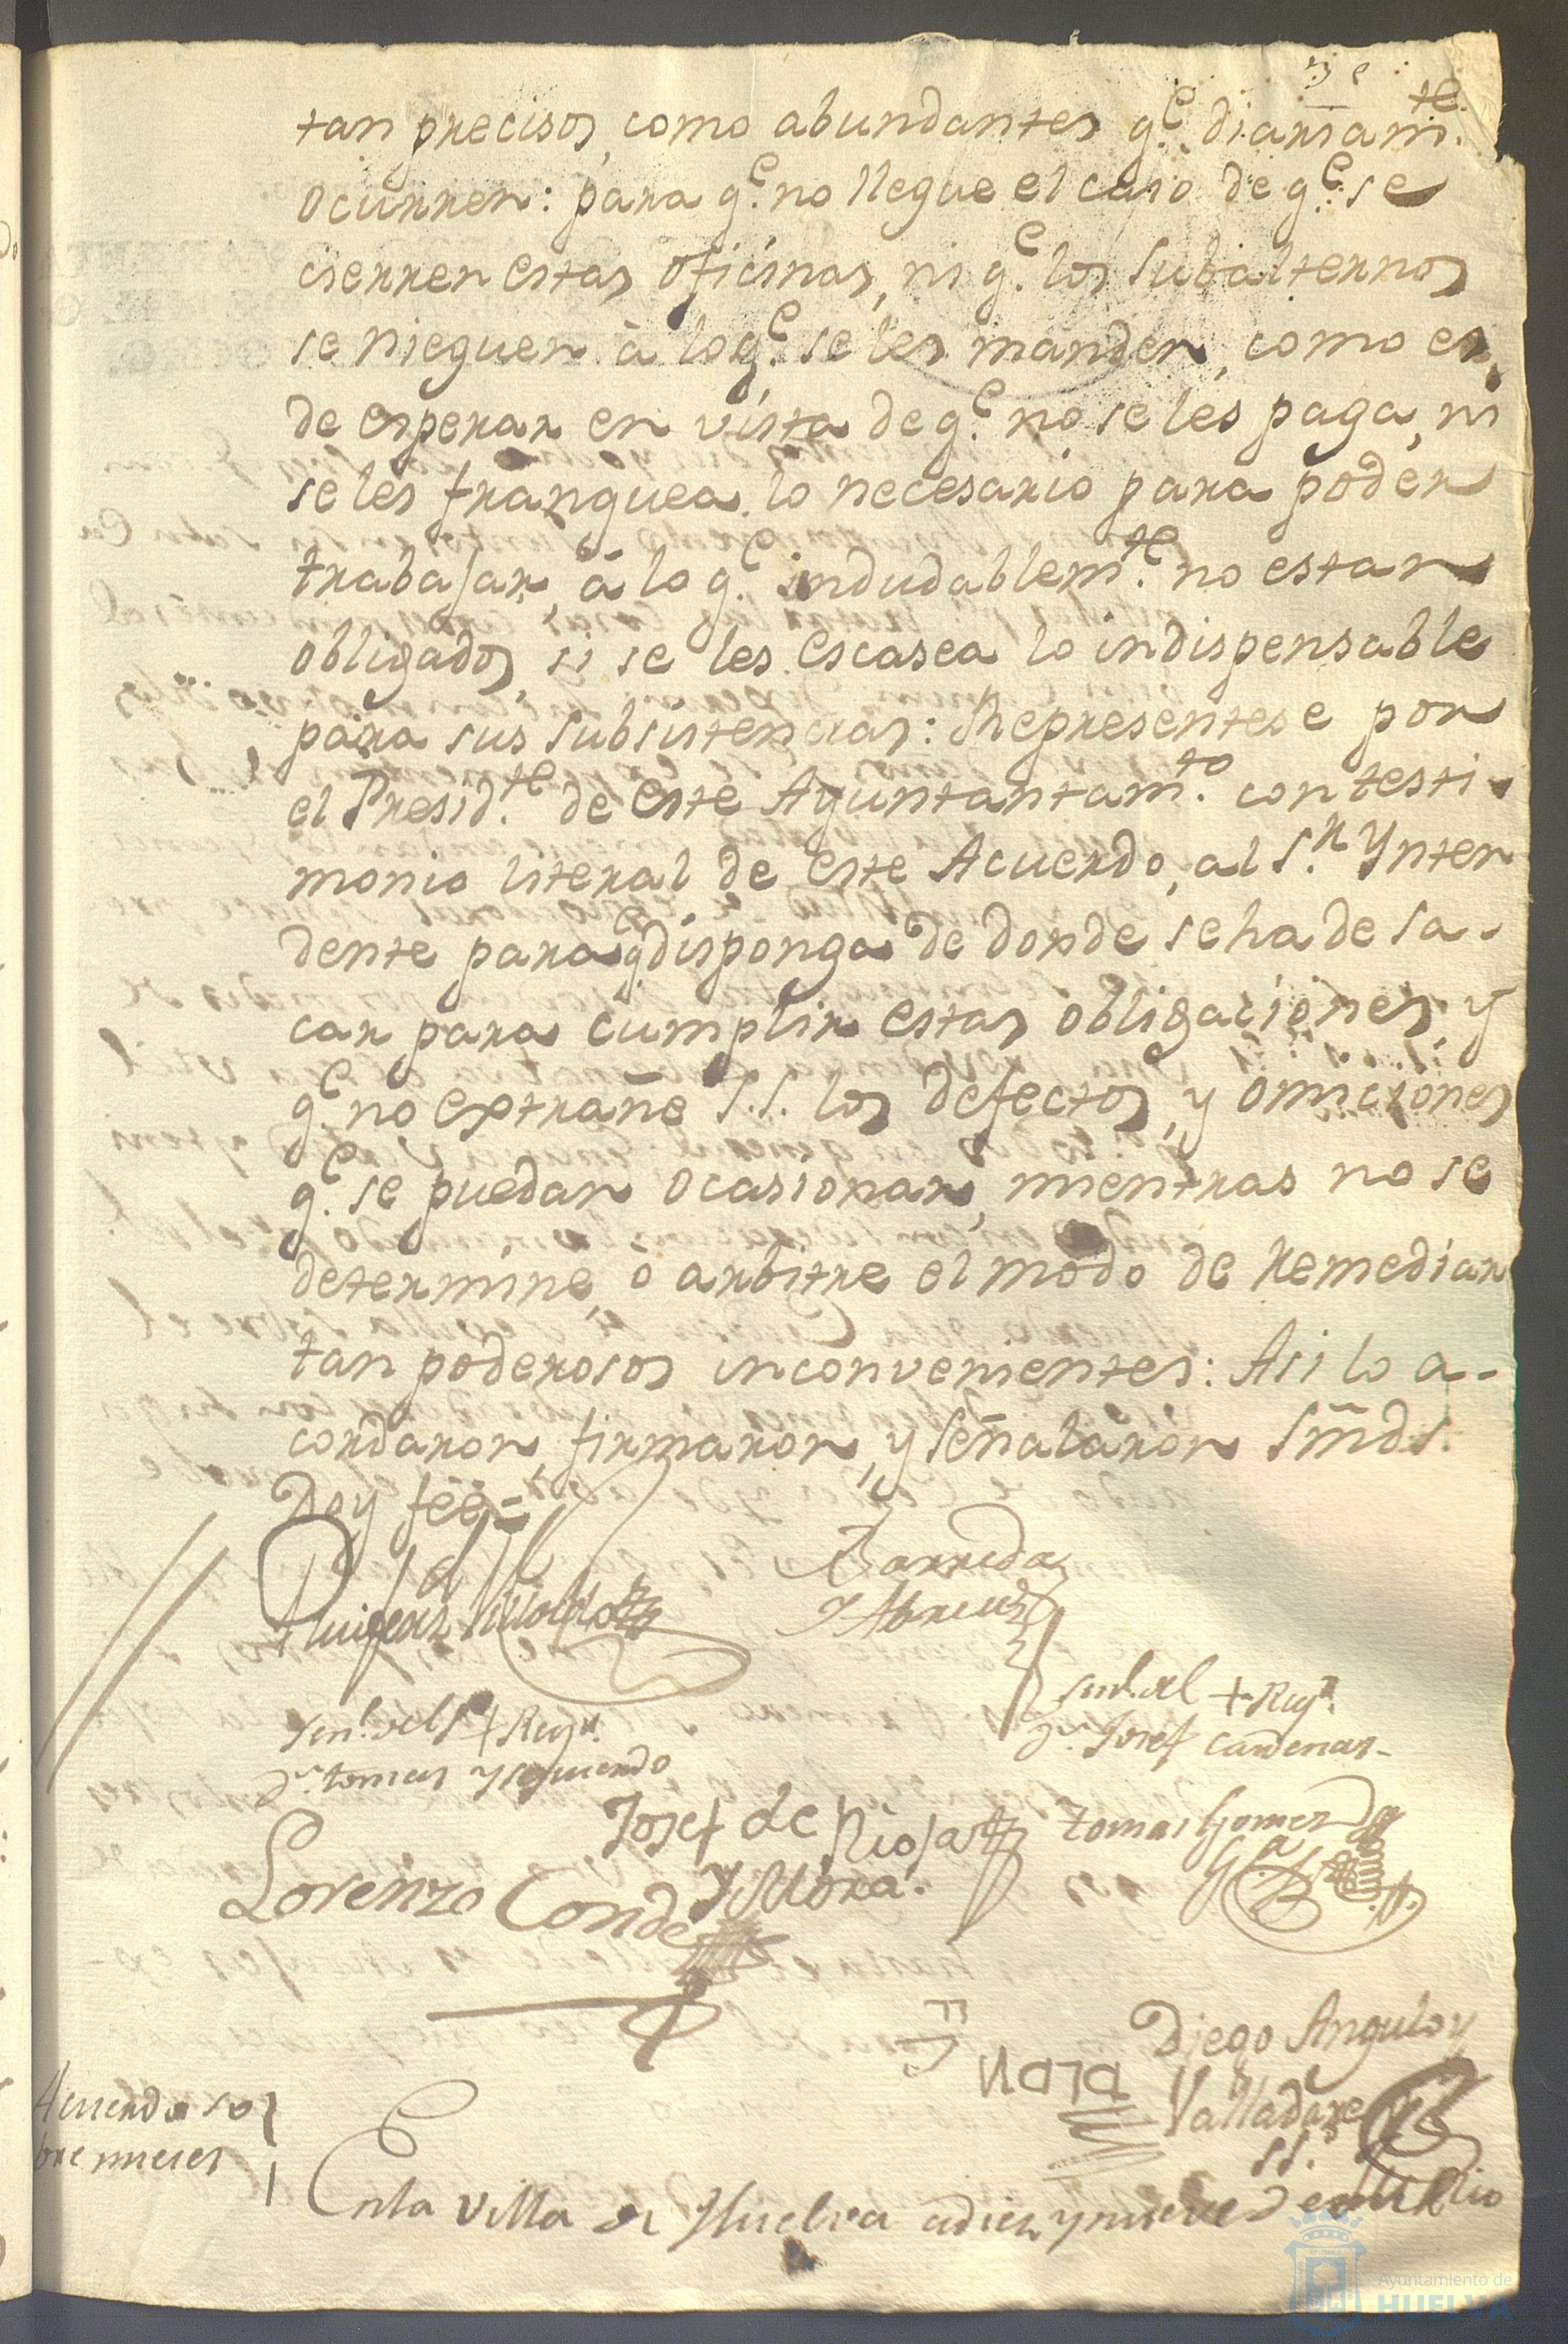 tan precisos, como abundantes q.e diariam.te
ocurren: para q.e no llegue el caso de q.e se
cierren estas oficinas, ni q.e los subalternos
se nieguen à lo q.e se les manden, como es,
de esperar en vista de q.e no se les paga, ni
se les franquea lo necesario para poder
trabajar, à lo q.e indudablem.te no estan
obligados, si se les escasea lo indispensable
para sus subsistencias: Representese por
el Presid.te de este Ayuntantam.to con testi-
monio literal de este Acuerdo, al S.r Ynten
dente para q.e disponga de donde se ha de sa-
car para cumplir estas obligaciones, y
q.e no extrañe S.S. los defectos, y omiciones
q.e se puedan ocasionar, mientras no se
determine, o arbitre el modo de remediar
tan poderosos inconvenientes: Asi lo a-
cordaron, firmaron, y señalaron Sm̃ds.
Doy feé =
Barreda
Y Abreu
señ.l del + Reg.r
D.n Josef Cardenas-
señ.l del S.r + Reg.r
D.n tomas ysquierdo
Josef de Rioja
Y Mora.
tomas Gomez
G.a
Lorenzo Conde
Diego Angulo y
Valladares
SS.o
Acuerdo so
bre mieses
En la Villa de Huelva a diez y nueve de Julio
Ayuntamiento de
HUELVA